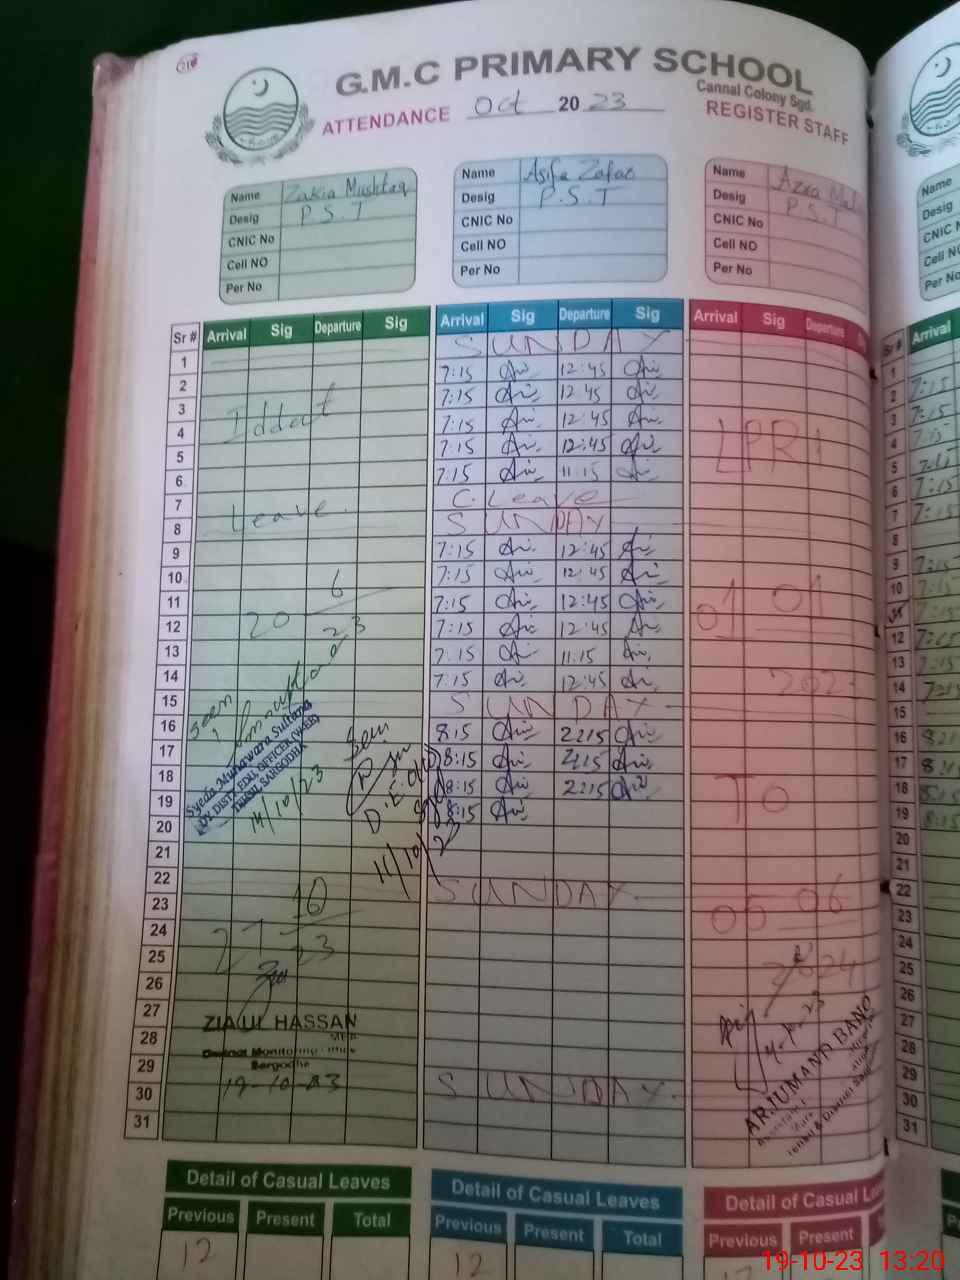 G.M.C PRIMARY SCHOOL
Cannal Colony Sgd.
ATTENDANCE Oct 2023 REGISTER STAFF
Name Zakia Mushtaq
Desig P.S.T
CNIC No
Cell NO
Per No
Name Asifa Zafar
Desig P.S.T
CNIC No
Cell NO
Per No
Name Azra
Desig P.S.T
CNIC No
Cell NO
Per No
Name
Desig
CNIC
Cell NO
Per No
Sr # Arrival Sig Departure Sig Arrival Sig Departure Sig Arrival Sig Departure Sr # Arrival
1 SUNDAY 1
2 7:15 12:45 2 7:15
3 7:15 12:45 3 7:15
4 Iddat 7:15 12:45 LPR 4 7:15
5 7:15 12:45 5 7:15
6 7:15 11:15 6 7:15
7 Leave C. Leave 7 7:15
8 SUNDAY 8
9 7:15 12:45 9 7:15
10 7:15 12:45 10 7:15
11 6 7:15 12:45 01 11 7:15
12 20 23 7:15 12:45 01 12 7:15
13 7:15 11:15 13 7:15
14 7:15 12:45 14 7:15
15 SUNDAY 15
16 8:15 2:15 16 8:15
17 8:15 2:15 17 8:15
18 8:15 2:15 TO 18 8:15
19 8:15 19 8:15
20 20
21 21
22 SUNDAY 22
23 10 05 06 23
24 27 23 24
25 2024 25
26 26
27 27
28 28
29 SUNDAY 29
30 30
31 31
Seen
Syeda Munawara Sultana
DY. DISTT. EDU. OFFICER (W-EE)
TEHSIL SARGODHA
14/10/23
Seen
D.E.O
11/10/23
ZIA UL HASSAN
MEA
District Monitoring Office
Sargodha
19-10-23
ARJUMAND BANO
Detail of Casual Leaves
Previous Present Total
12
Detail of Casual Leaves
Previous Present Total
12
Detail of Casual
Previous Present
19-10-23 13:20